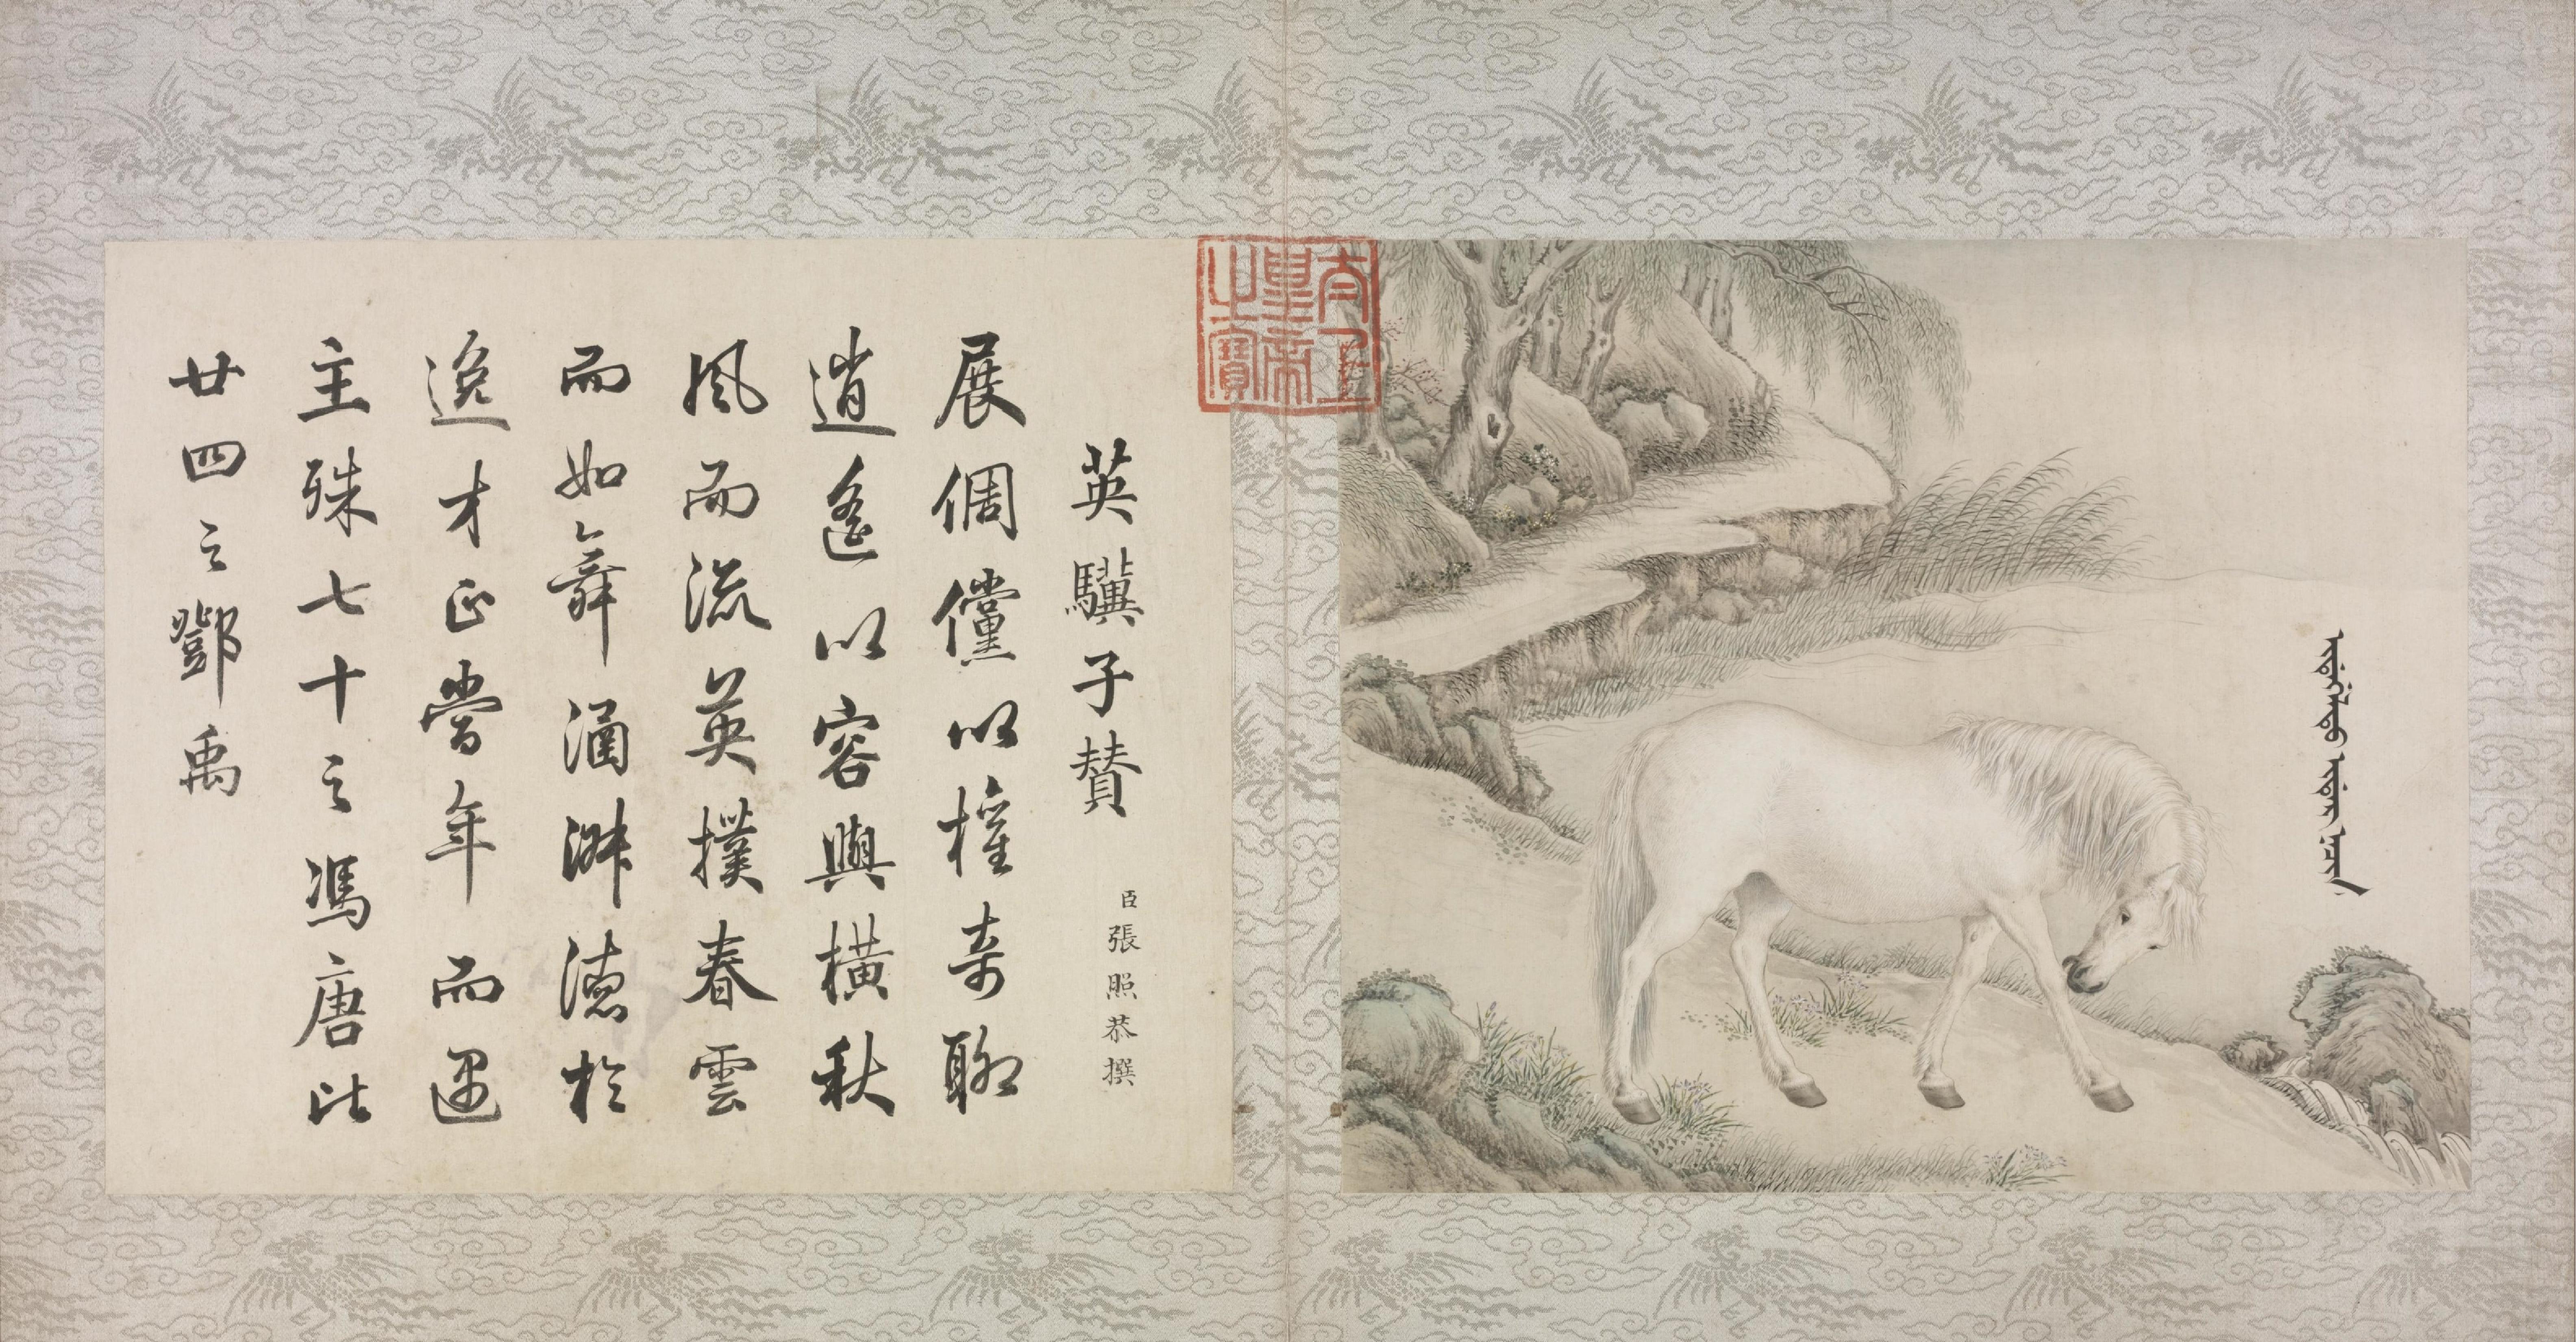 太上
皇帝
之寶
英驥子贊 臣張照恭撰
展倜儻以權奇聊
逍遙以容與橫秋
風而流英撲春雲
而如舞涵淵德於
逸才正當年而遇
主殊七十之馮唐比
廿四之鄧禹